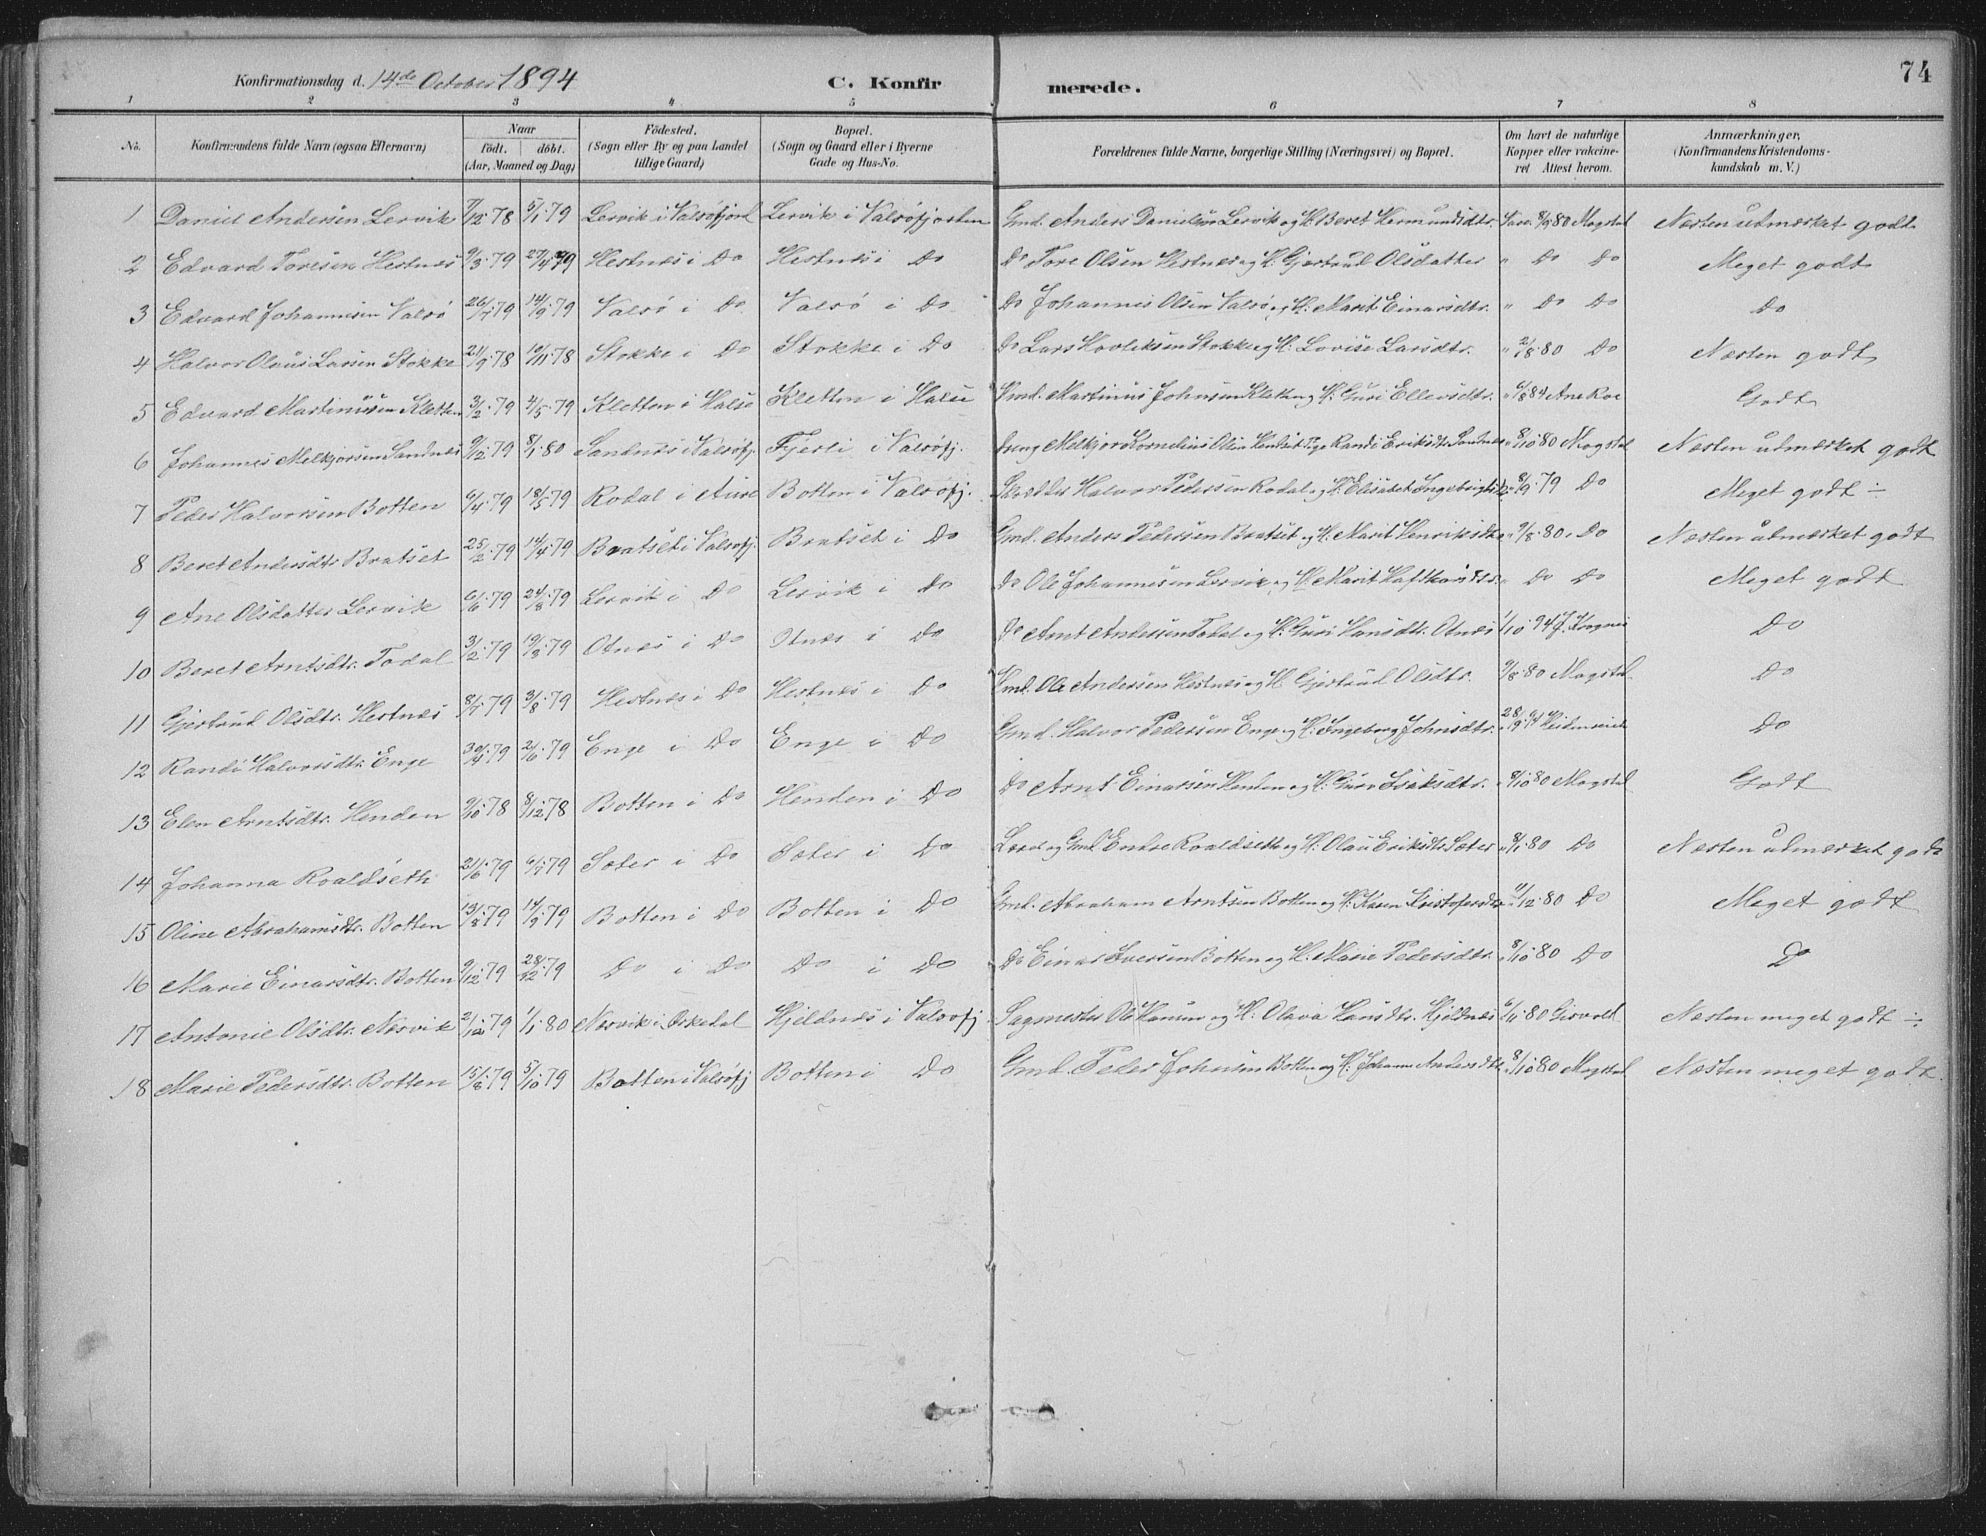 74
Konfirmationsdag d. 14de October 1894 C. Konfirmerede.
1 2 3 4 5 6 7 8
No. Konfirmandens fulde Navn (ogsaa Efternavn) Naar födt. döbt. (Aar, Maaned og Dag) Födested. (Sogn eller By og paa Landet tillige Gaard) Bopæl. (Sogn og Gaard eller i Byerne Gade og Hus-No. Forældrenes fulde Navne, borgerlige Stilling (Næringsvei) og Bopæl. Om havt de naturlige Kopper eller vakcineret Attest herom. Anmærkninger. (Konfirmandens Kristendomskundskab m. V.)
1 Daniel Andersen Lervik 7/12 78 5/1 79 Lervik i Valsøfjord Lervik i Valsøfjorden Gmd. Anders Danielsen Lervik og H. Beret Hermundsdtr. Vacc. 8/9 80 Mogstad Næsten udmærket godt
2 Edvard Toresen Hestnæs 9/3 79 27/4 79 Hestnæs i Do Hestnæs i Do Do Tore Olsen Hestnæs og H. Gjertrud Olsdatter " Do Do Meget godt
3 Edvard Johannesen Valsø 26/7 79 14/9 79 Valsø i Do Valsø i Do Do Johannes Olsen Valsø og H. Marit Einarsdtr. " Do Do Do
4 Halvor Olaus Larsen Stokke 21/9 78 10/11 78 Stokke i Do Stokke i Do Do Lars Stokke og H. Lovise Larsdtr. " 2/8 80 Do Næsten godt
5 Edvard Martinussen Kletten 3/2 79 4/5 79 Kletten i Halse Kletten i Halse Gmd. Martinus Johnsen Kletten og H. Guri Ellevsdtr. " 6/8 84 Ane Roe Godt
6 Johannes Melkjorsen Sandnes 9/12 79 8/1 80 Sandnes i Valsøfj. Fjerli i Valsøfj. Ung Melkjor Kornelius Olsen Pige Randi Eriksdtr. Sandnes " 8/10 80 Mogstad Næsten udmærket godt
7 Peder Halvorsen Botten 6/4 79 18/5 79 Rodal i Aure Botten i Valsøfj. Skrædder Halvor Pedersen Rodal og H. Elisabet Ingebrigtsd. " 8/9 79 Do Meget godt ÷
8 Beret Andersdtr. Bratset 25/2 79 14/4 79 Bratset i Valsøfj. Bratset i Do Gmd. Anders Pedersen Bratset og H. Marit Henriksdtr. " 9/8 80 Do Næsten udmærket godt
9 Ane Olsdatter Lervik 6/6 79 24/8 79 Lervik i Do Lervik i Do Do Ole Johannesen Lervik og H. Marit " Do Do Meget godt
10 Beret Arntsdtr. Todal 3/2 79 19/3 79 Otnæs i Do Otnæs i Do Do Arnt Andersen Todal og H. Guri Hansdtr. Otnæs 1/10 94 Do
11 Gjertrud Olsdtr. Hestnæs 8/7 79 3/8 79 Hestnæs i Do Hestnæs i Do Gmd. Ole Andersen Hestnæs og H. Gjertrud Olsdtr. 9/8 80 Mogstad Do
12 Randi Halvorsdtr. Enge 30/4 79 2/6 79 Enge i Do Enge i Do Gmd. Halvor Pedersen Enge og H. Ingeborg Johnsdtr. 28/9 94 Do
13 Elen Arntsdtr. Henden 9/10 78 8/12 78 Botten i Do Henden i Do Do Arnt Einarsen Henden og H. Guru Isaksdtr. " 8/10 80 Mogstad Godt
14 Johanna Roaldseth 21/6 79 6/7 79 Sæter i Do Sæter i Do og Gmd Endre Roaldseth og H. Olau Eriksdtr. Sæter " 8/1 80 Do Næsten udmærket godt
15 Oline Abrahamsdtr. Botten 13/8 79 14/9 79 Botten i Do Botten i Do Gmd. Abraham Arntsen Botten og H. Karen Kristofersdtr. /12 80 Do Meget godt
16 Marie Einarsdtr. Botten 9/12 79 28/12 79 Do i Do Do i Do Do Einar Iversen Botten og H. Marie Pedersdtr. " 8/10 80 Do Do
17 Antonie Olsdtr. Nervik 2/12 79 1/1 80 Nervik i Orkedal Hjeldnæs i Valsøfj Sagmester Ole Hansen og H. Olava Hansdtr. Hjeldnæs 6/11 80 Girvold Næsten meget godt ÷
18 Marie Pedersdtr. Botten 15/8 79 5/10 79 Botten i Valsøfj Botten i Do Gmd. Peder Johnsen Botten og H. Johanne Andersdtr. 8/10 80 Mogstad Næsten meget godt.